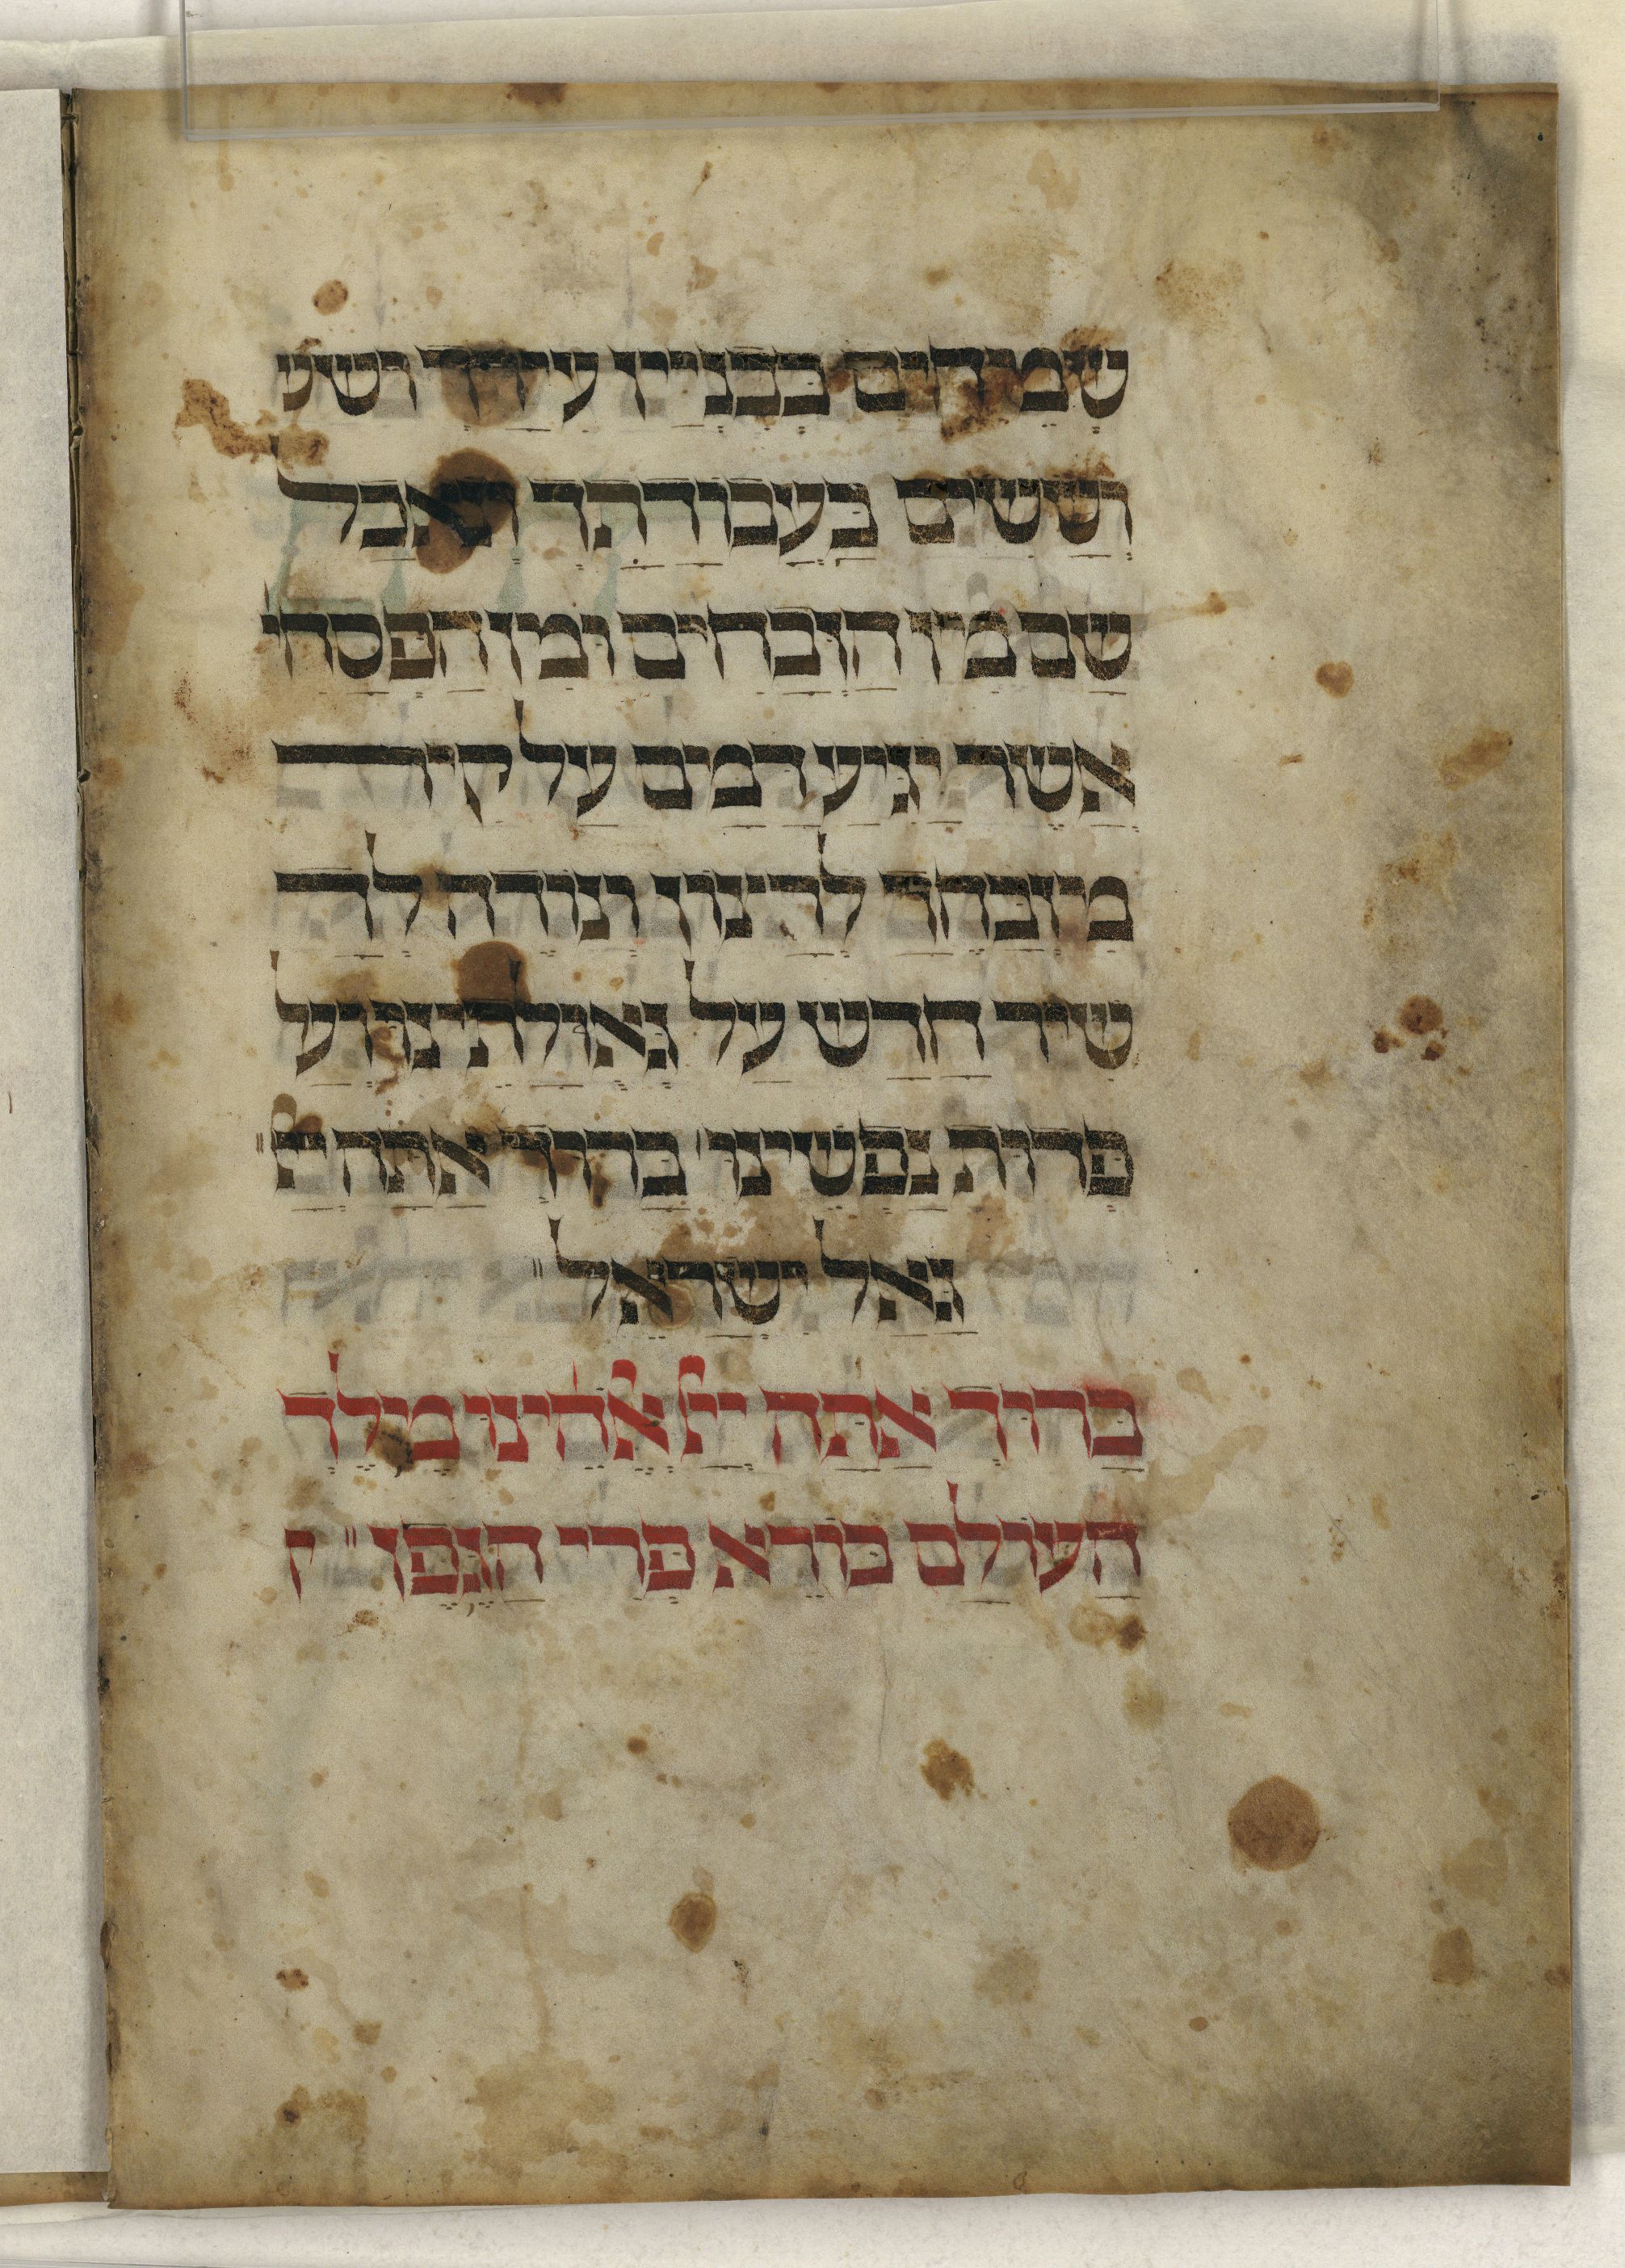 שמיחים בבניין עירך ושש
וששים בעבודתך ונאכל
שם מין הזבחים ומן הפסחי
אשר יגיע דמם על קיר
מיזבחך לרינון ונודה לך
שיר חדש על גאולתינו ועל
פדות נפשינו ברוך אתה יי
גאל ישראל
ברוך אתה יי אלהינו מילך
העולם בורא פרי הגפן